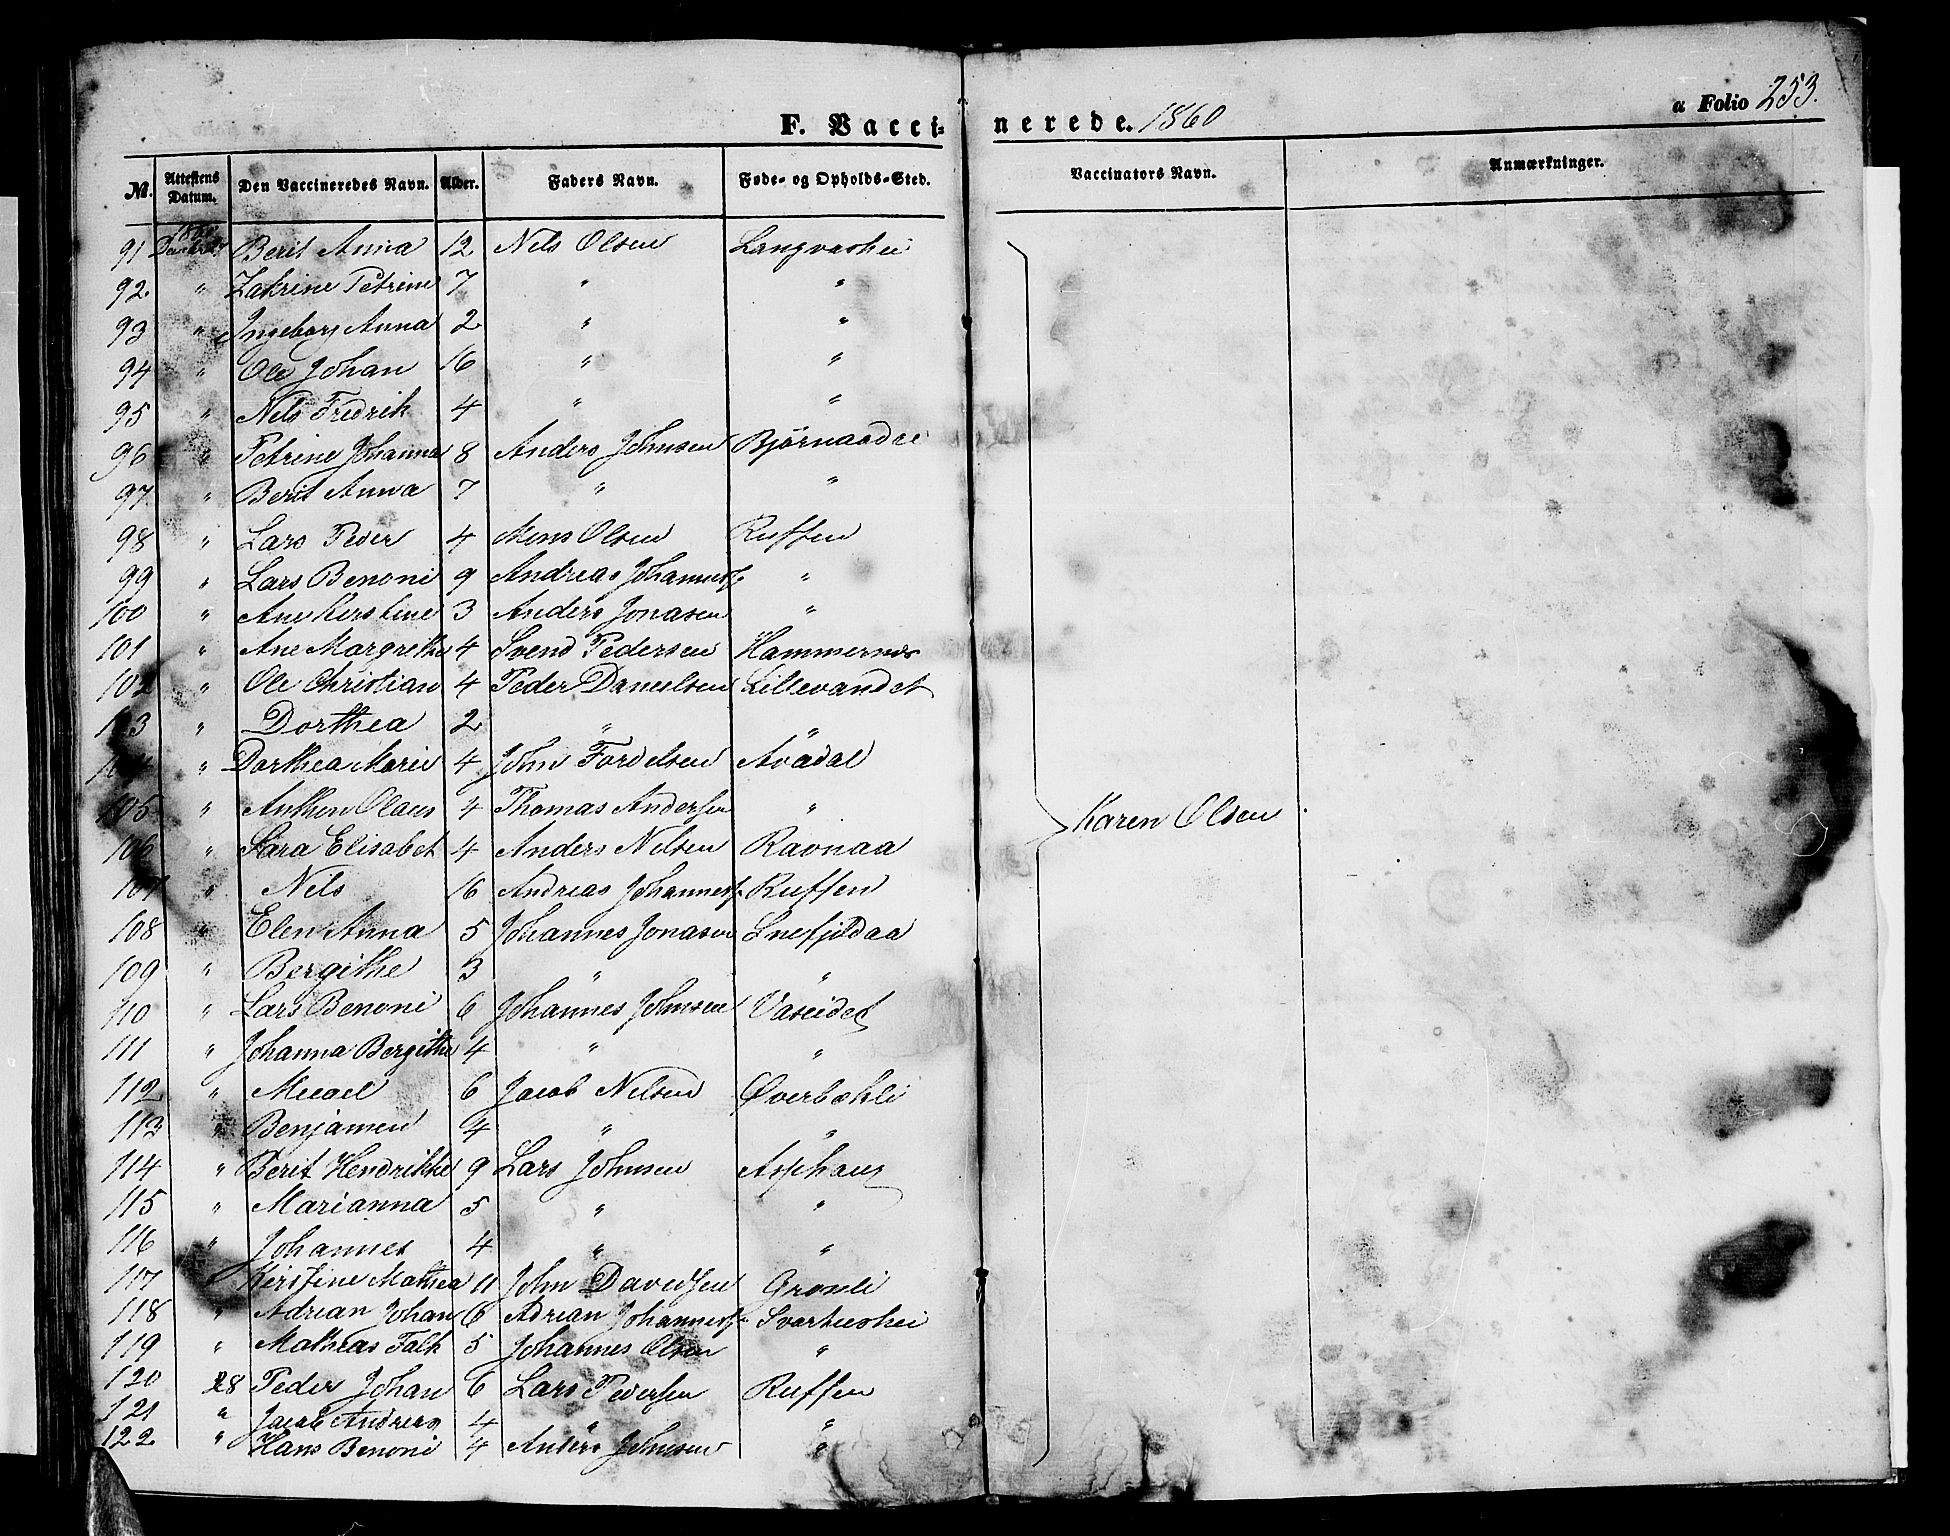 a Folio 253.
F. Vaccinerede. 1860
№. Attestens Datum. Den Vaccineredes Navn. Alder. Faders Navn. Føde- og Opholds-Sted. Vaccinators Navn. Anmærkninger.
91 Berit Anna 12 Nels Olsen
92. " Zakrine Petrine 7 " "
93 " Ingeborg Anna 2 " "
94 " Ole Johan 16 " "
95 " Nels Fredrik 4 " "
96 " Petrine Johanna 8 Anders Johnsen Bjørnaadal
97 " Berit Anna 7 " "
98 " Lars Peder 4 Mons Olsen Ruffen
99 " Lars Benoni 9 Andreas Johannesf. "
100 " Ane Kirstine 3 Anders Jonasen "
101 " Ane Margrethe 4 Svend Pedersen Hammernes
102 " Ole Christian 4 Peder Danielsen Lillevandet
103 " Dorthea 2 " "
104 " Dorthea Marie 4 John Fordelsen
105 " Anthon Olaus 4 Thomas Andersen "
Karen Olsen
106 " Sara Elisabet 4 Anders Nelsen Ravnaa
107 " Nels 16 Andreas Johannesf. Ruffen
108 " Elen Anna 5 Johannes Jonasen Snefjeldaa
109 " Bergithe 3 " "
110 " Lars Benoni 6 Johannes Johnsen Vaseidet
111 " Johanna Bergithe 4 " "
112 " Mecael 6 Jacob Nelsen Øverbækli
113 " Benjamen 4 " "
114 " Berit Hendrikke 9 Lars Johnsen Asphaug
115 " Marianna 5 " "
116 " Johannes 4 " "
117 " Kirstine Mathea 11 John Davidsen Grønli
118 " Adrian Johan 6 Adrian Johannesf.
119 " Mathias Falk 5 Johannes Olsen "
120 28 Peder Johan 6 Lars Pedersen Ruffen
121 " Jacob Andreas 4 " "
122. " Hans Benoni 4 Anders Johnsen "